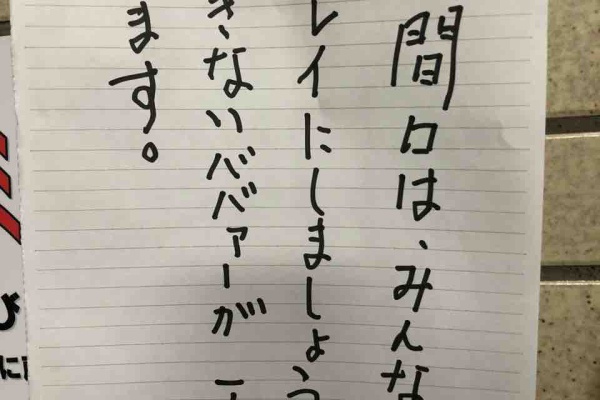 間口は、みんな
レイにしましょう
きないババァーが
ます。
び
に